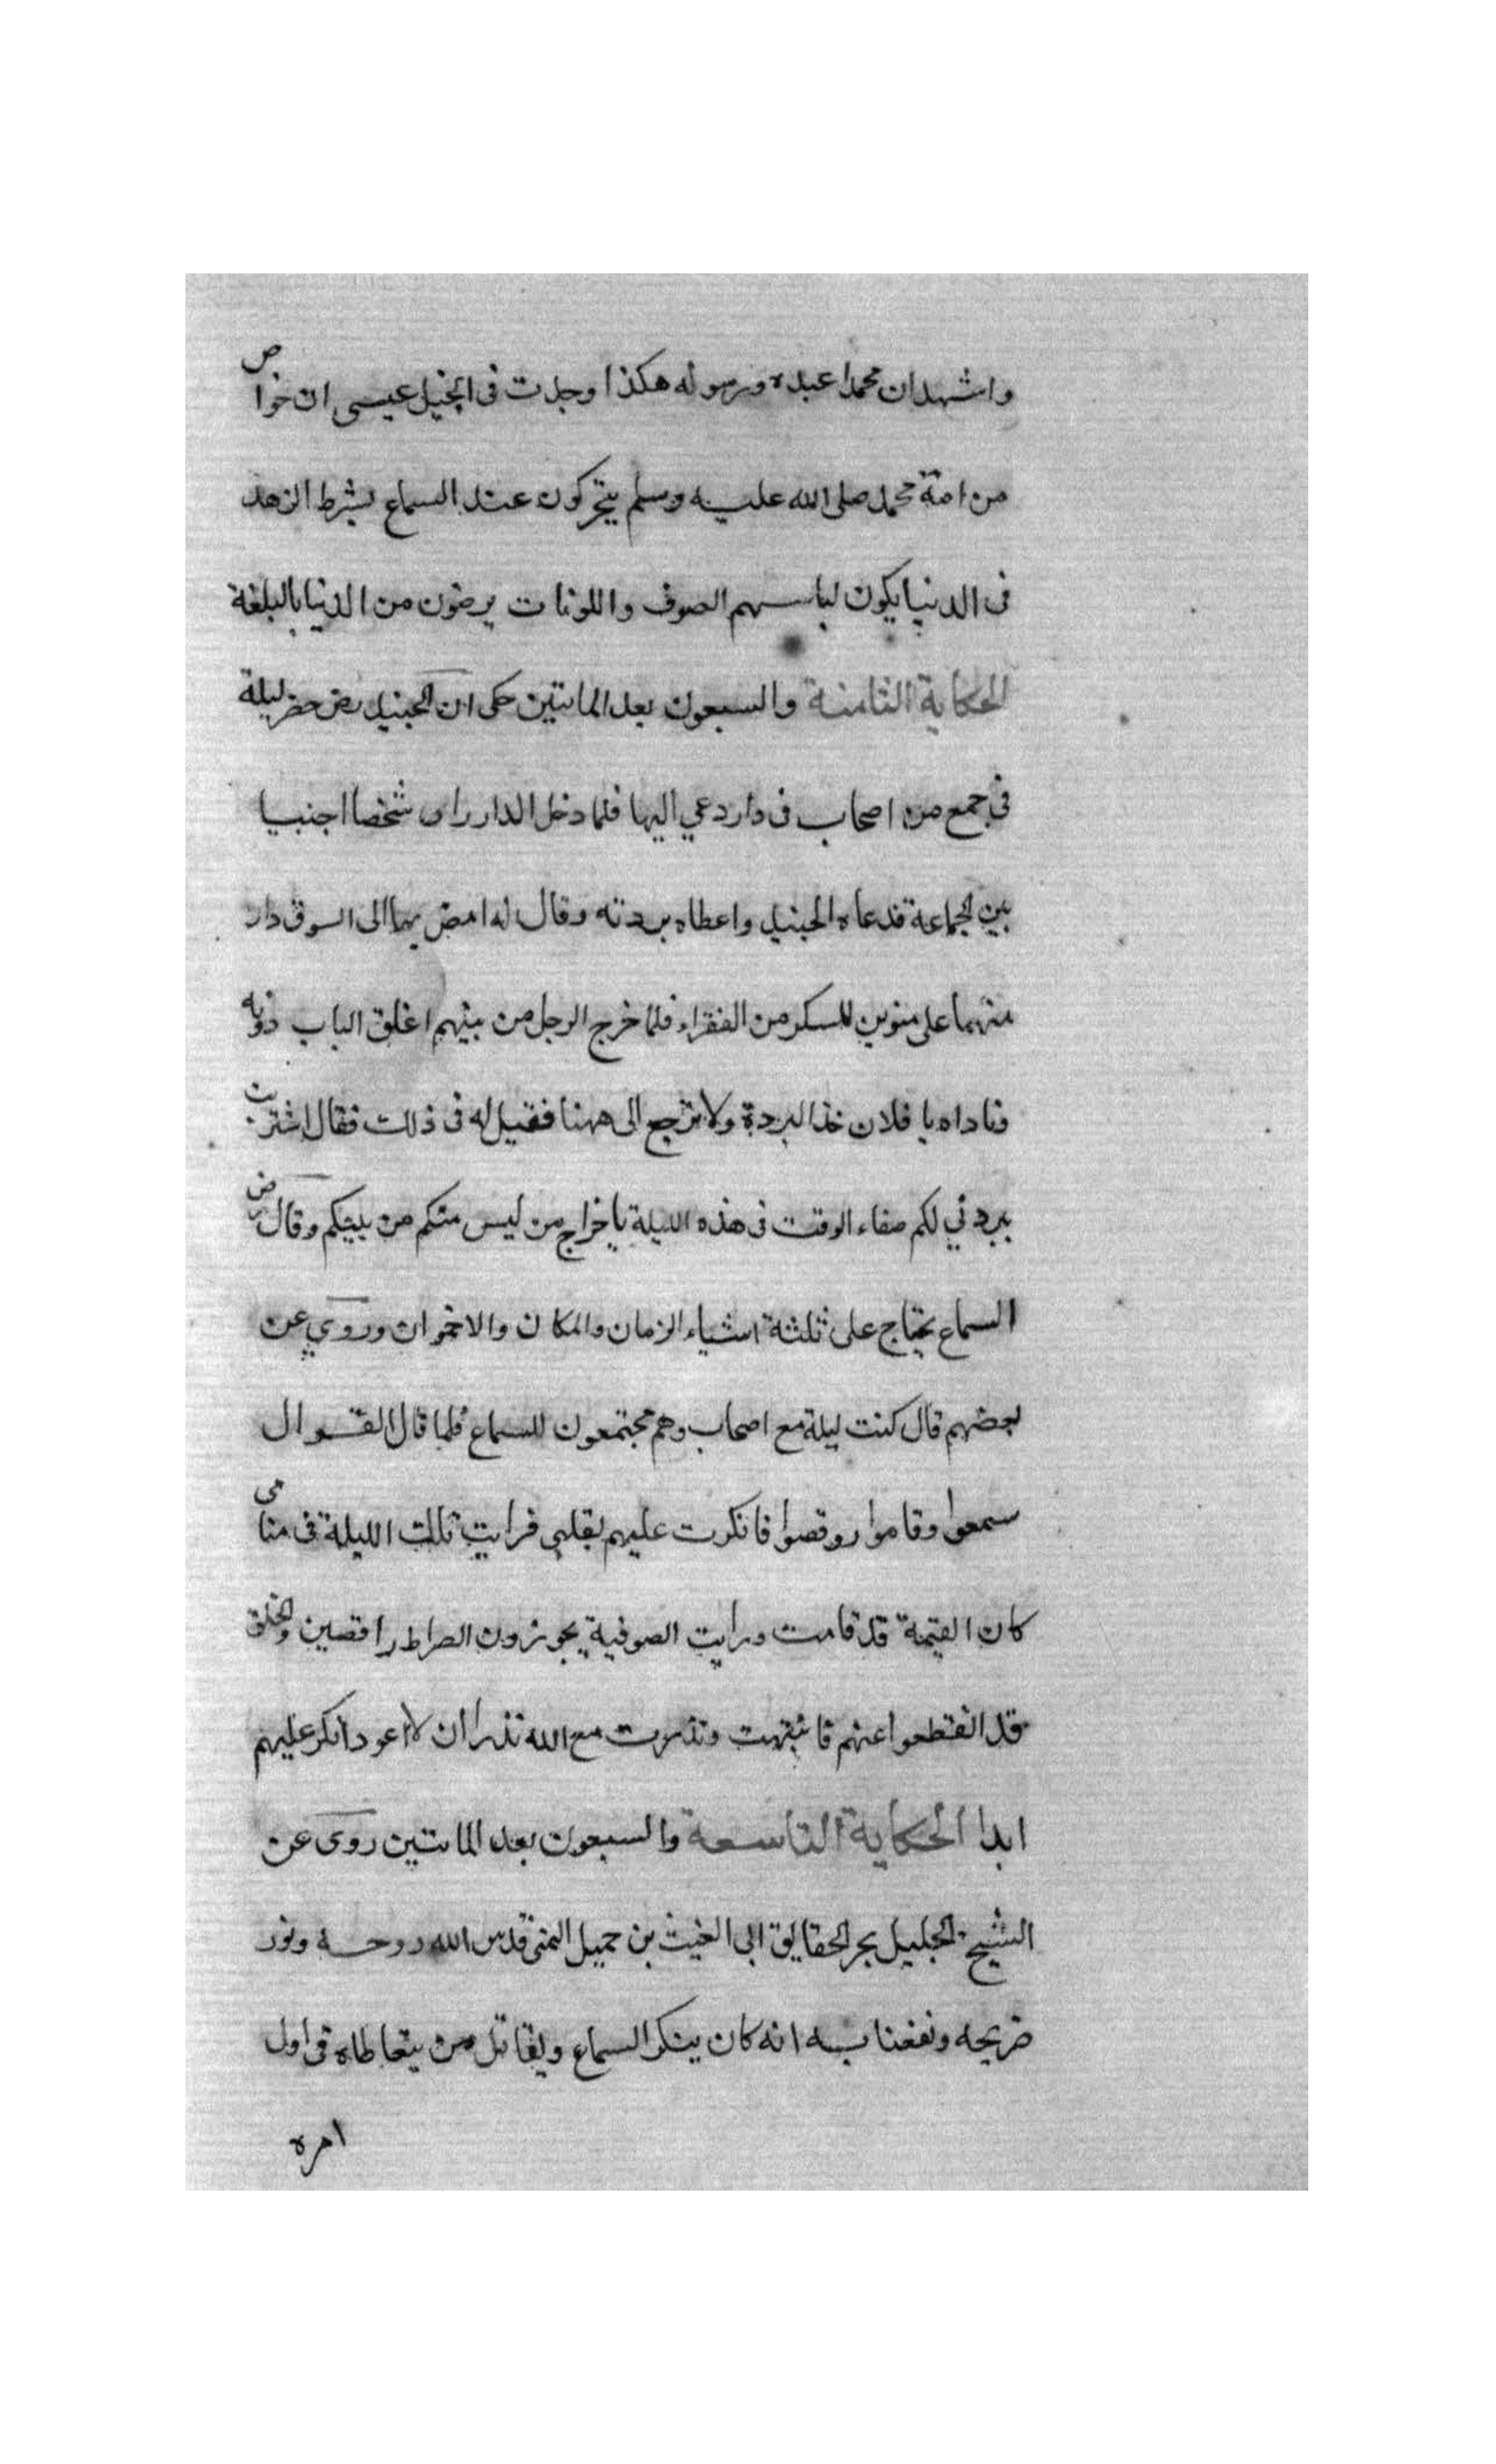 واشهد ان محمدا عبده ورسوله هكذا وجدت فى انجيل عيسى ان خواص
من امة محمد صلى الله عليه وسلم يتحركون عند السماع بشرط الزهد
فى الدنيا يكون لباسهم الصوف واللونات يرضون من الدنيا بالبلغة
الحكاية الثامنة والسبعون بعد المائتين حكى ان الجنيد رض حضر ليلة
فى جمع من اصحاب فى دار دعي اليها فلما دخل الدار راى شخصا اجنبيا
بين الجماعة فدعاه الجنيد واعطاه بردته وقال له امض بها الى السوق دار
منهما على منوين للسكر من الفقراء فلما خرج الرجل من بينهم اغلق الباب دونه
وناداه يا فلان خذ البردة ولا ترجع الى ههنا فقيل له فى ذلك فقال اشتريت
ببردتي لكم صفاء الوقت فى هذه الليلة باخراج من ليس منكم من بينكم وقال رض
السماع يحتاج على ثلثة اشياء الزمان والمكان والاخوان وروي عن
بعضهم قال كنت ليلة مع اصحاب وهم مجتمعون للسماع فلما قال القوال
سمعوا وقاموا روقصوا فانكرت عليهم بقلبي فرايت تلك الليلة فى منامى
كان القيمة قد قامت ورايت الصوفية يجوزون الصراط راقصين والخلق
قد انقطعوا عنهم فانتبهت ونذرت مع الله نذرا ان لا اعود انكر عليهم
ابدا الحكاية التاسعة والسبعون بعد المائتين روى عن
الشيخ الجليل بحر الحقايق ابى الغيث بن جميل اليمنى قدس الله روحه ونور
ضريحه ونفعنا به انه كان ينكر السماع ويقاتل من يتعاطاه فى اول
امره